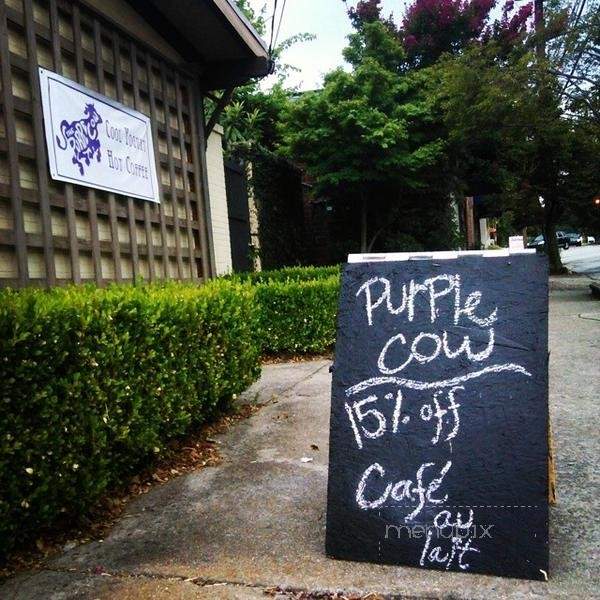 COOL YOGURT
HOT COFFEE
PURPLE
COW
15% off
Café
au
lait
menupix